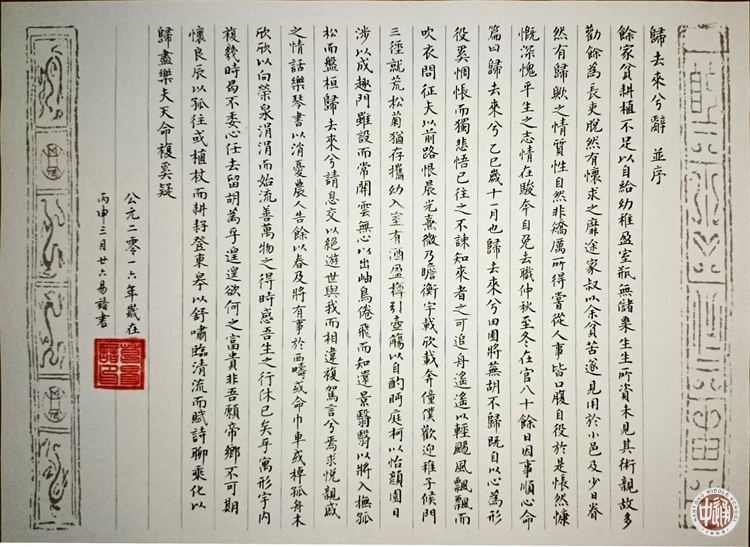 歸去來兮辭 並序
餘家貧耕植不足以自給幼稚盈室瓶無儲粟生生所資未見其術親故多
勸餘為長吏脫然有懷求之靡途家叔以余貧苦遂見用於小邑及少日眷
然有歸歟之情質性自然非矯厲所得嘗從人事皆口腹自役於是悵然慷
慨深愧平生之志情在駿奔自免去職仲秋至冬在官八十餘日因事順心命
篇曰歸去來兮乙巳歲十一月也歸去來兮田園將蕪胡不歸既自以心為形
役奚惆悵而獨悲悟已往之不諫知來者之可追舟遙遙以輕颺風飄飄而
吹衣問征夫以前路恨晨光熹微乃瞻衡宇載欣載奔僮僕歡迎稚子候門
三徑就荒松菊猶存攜幼入室有酒盈樽引壺觴以自酌眄庭柯以怡顏園日
涉以成趣門雖設而常關雲無心以出岫鳥倦飛而知還景翳翳以將入撫孤
松而盤桓歸去來兮請息交以絕遊世與我而相違複駕言兮焉求悅親戚
之情話樂琴書以消憂農人告餘以春及將有事於西疇或命巾車或棹孤舟木
欣欣以向榮泉涓涓而始流善萬物之得時感吾生之行休已矣乎寓形宇內
複幾時曷不委心任去留胡為乎遑遑欲何之富貴非吾願帝鄉不可期
懷良辰以孤往或植杖而耕耔登東皋以舒嘯臨清流而賦詩聊乘化以
歸盡樂夫天命複奚疑
公元二零一六年歲在
丙申三月廿六易諳書